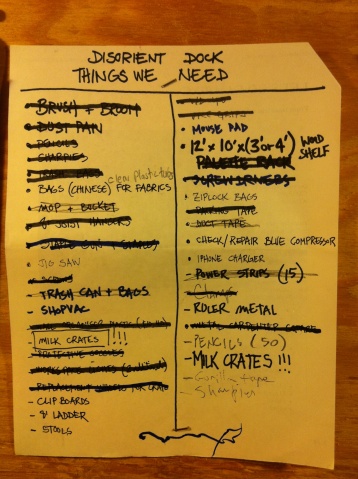 DISORIENT DOCK
THINGS WE NEED
• BRUSH + BROOM
• DUST PAN
• PENCILS
• SHARPIES
clear plastic tubs
• BAGS (CHINESE) FOR FABRICS
• MOP + BUCKET
JOIST HANGERS
• STAPLE GUN + STAPLES
• JIG SAW
- TRASH CAN + BAGS
- SHOPVAC
MILK CRATES !!!
- PROTECTIVE GOGGLES
FOR CRATE
- CLIPBOARDS
- 8' LADDER
- STOOLS
• MOUSE PAD
• 12' x 10' x (3' or 4') WOOD SHELF
PALETTE RACK
• SCREWDRIVERS
• ZIPLOCK BAGS
TAPE
• DUCT TAPE
• CHECK/REPAIR BLUE COMPRESSOR
• IPHONE CHARGER
- POWER STRIPS (15)
- Clamps
- RULER METAL
- METAL CARPENTER
- PENCILS (50)
- MILK CRATES !!!
- Gorilla tape
- Sharpies